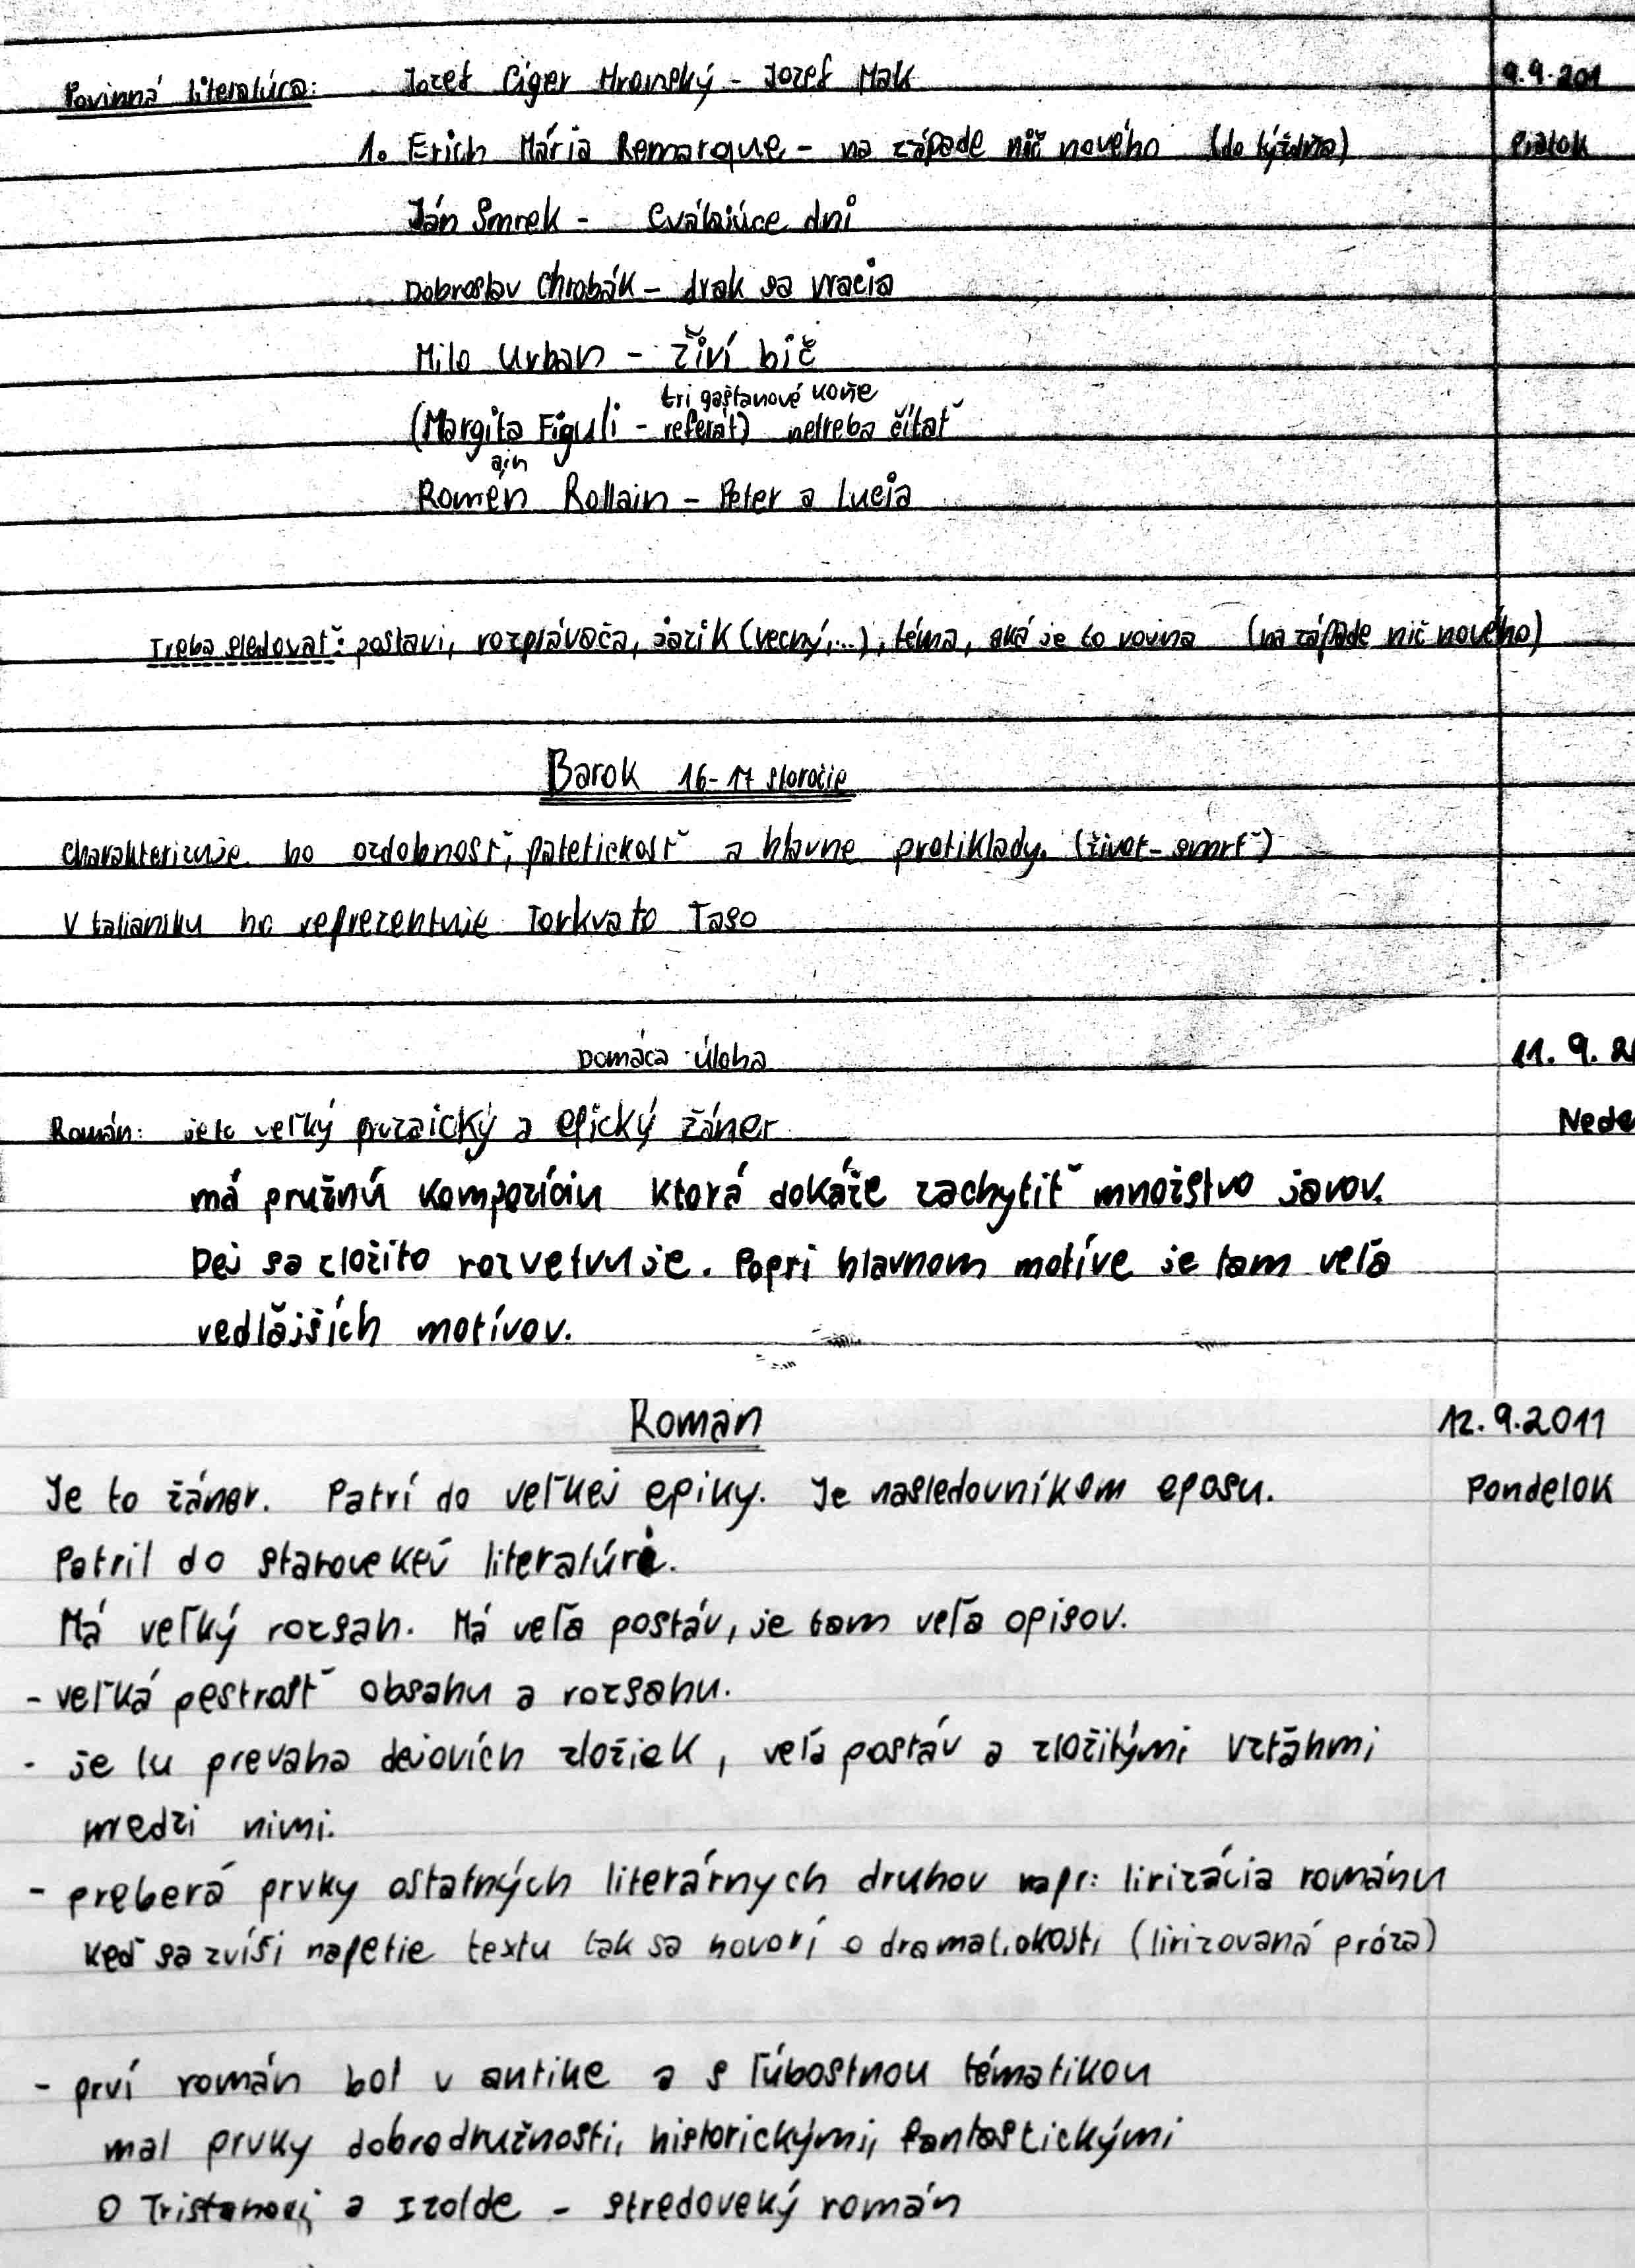 Povinná literatúra: Jozef Cíger Hronský - Jozef Mak 9.9.201
1. Erich Mária Remarque - na západe nič nového (do týždňa) Piatok
Ján Smrek - Cválajúce dni
Dobroslav Chrobák - drak sa vracia
Milo Urban - živí bič
tri gaštanové kone
(Margita Figuli - referát) netreba čítať
ain
Romén Rollain - Peter a Lucia
Treba sledovať: postavi, rozprávača, jazik (vecný,...), téma, aká je to vojna (na západe nič nového)
Barok 16-17 storočie
Charakterizuje ho ozdobnosť, patetickosť a hlavne protiklady. (život - smrť)
V taliansku ho reprezentuje Torkvato Taso
Domáca úloha 11. 9. 2
Román: je to veľký prozaický a epický žáner Nede
má pružnú kompozíciu ktorá dokáže zachytiť množstvo javov.
Dej sa zložito rozvetvuje. Popri hlavnom motíve je tam veľa
vedľajších motívov.
Roman 12.9.2011
Je to žáner. Patrí do veľkej epiky. Je nasledovníkom eposu. Pondelok
Patril do starovekej literatúri.
Má veľký rozsah. Má veľa postáv, je tam veľa opisov.
- veľká pestrosť obsahu a rozsahu.
- je tu prevaha dejovích zložiek, veľa postáv a zložitými vzťahmi
medzi nimi.
- preberá prvky ostatných literárnych druhov napr: lirizácia románu
keď sa zvíši napetie textu tak sa hovorí o dramatickosti (lirizovaná próza)
- prví román bol v antike a s ľúbostnou tématikou
mal prvky dobrodružnosti, historickými, fantastickými
O Tristanovi a Izolde - stredoveký román